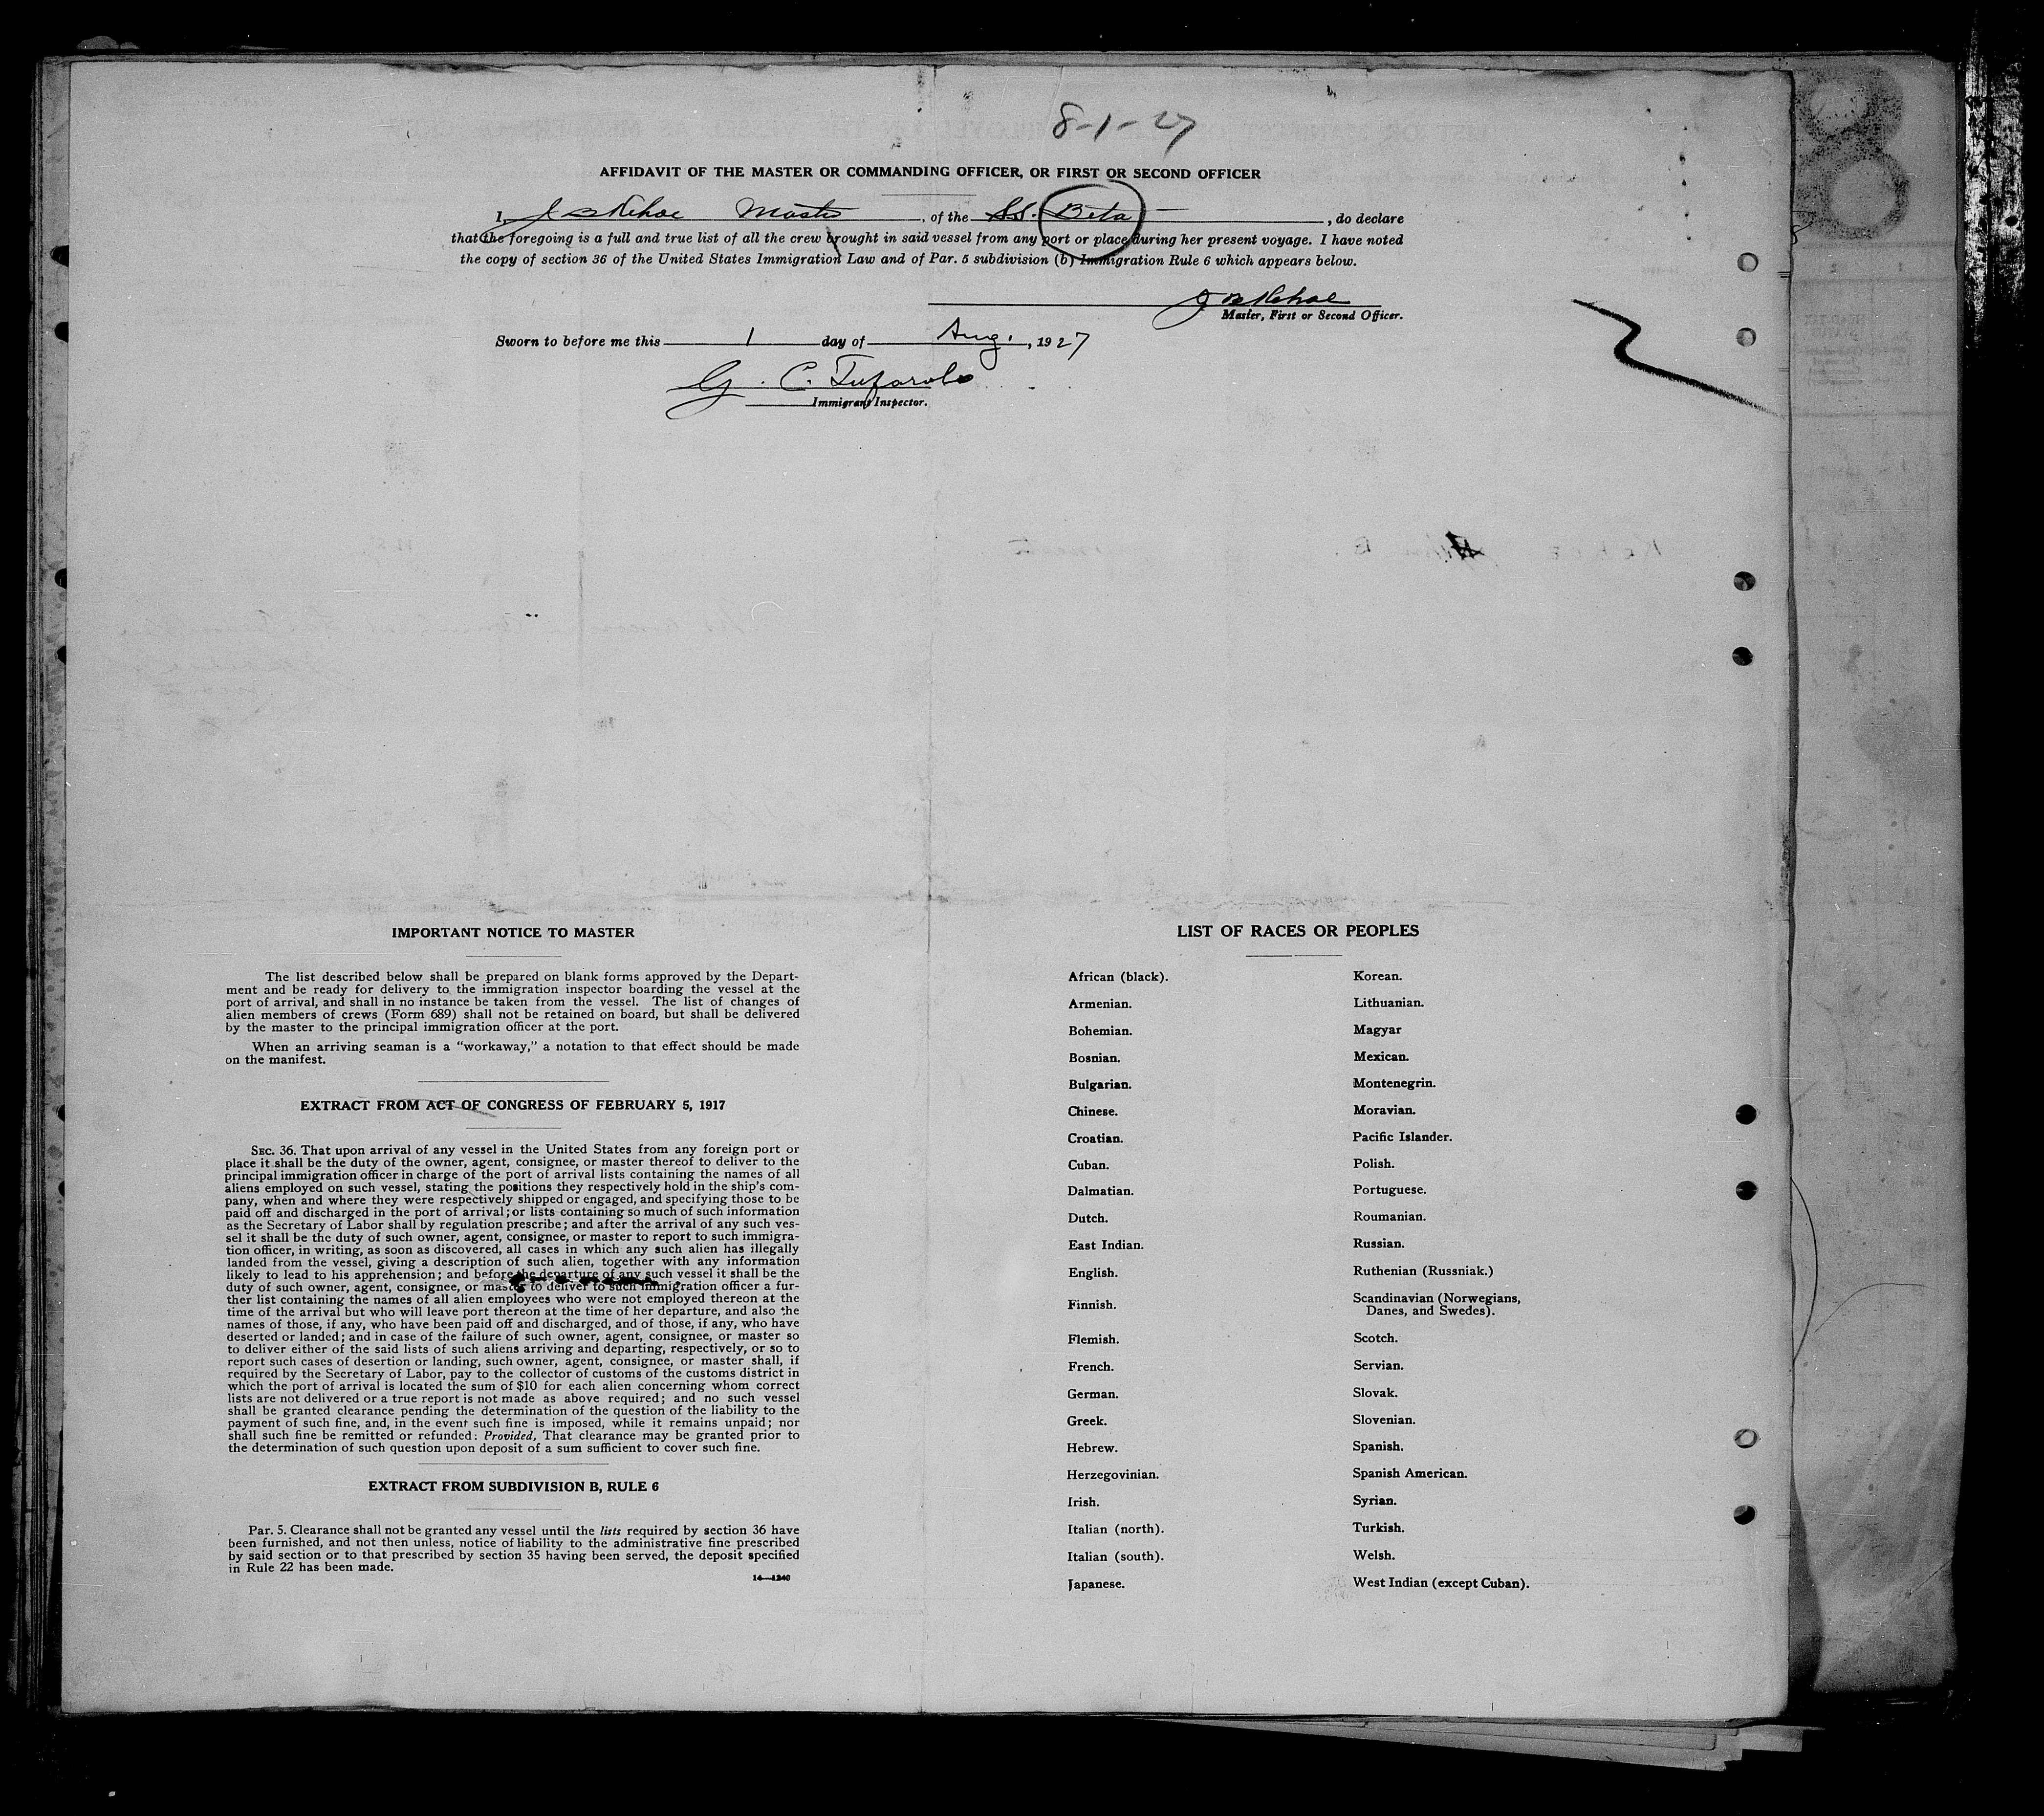 8-1-27
AFFIDAVIT OF THE MASTER OR COMMANDING OFFICER, OR FIRST OR SECOND OFFICER
I, J B Kehoe Master, of the SS. Beta, do declare
that the foregoing is a full and true list of all the crew brought in said vessel from any port or place during her present voyage. I have noted
the copy of section 36 of the United States Immigration Law and of Par. 5 subdivision (b) Immigration Rule 6 which appears below.
J B Kehoe
Master, First or Second Officer.
Sworn to before me this 1 day of Aug., 1927
G. C.
Immigrant Inspector.
IMPORTANT NOTICE TO MASTER
The list described below shall be prepared on blank forms approved by the Depart-
ment and be ready for delivery to the immigration inspector boarding the vessel at the
port of arrival, and shall in no instance be taken from the vessel. The list of changes of
alien members of crews (Form 689) shall not be retained on board, but shall be delivered
by the master to the principal immigration officer at the port.
When an arriving seaman is a "workaway," a notation to that effect should be made
on the manifest.
EXTRACT FROM ACT OF CONGRESS OF FEBRUARY 5, 1917
SEC. 36. That upon arrival of any vessel in the United States from any foreign port or
place it shall be the duty of the owner, agent, consignee, or master thereof to deliver to the
principal immigration officer in charge of the port of arrival lists containing the names of all
aliens employed on such vessel, stating the positions they respectively hold in the ship's com-
pany, when and where they were respectively shipped or engaged, and specifying those to be
paid off and discharged in the port of arrival; or lists containing so much of such information
as the Secretary of Labor shall by regulation prescribe; and after the arrival of any such ves-
sel it shall be the duty of such owner, agent, consignee, or master to report to such immigra-
tion officer, in writing, as soon as discovered, all cases in which any such alien has illegally
landed from the vessel, giving a description of such alien, together with any information
likely to lead to his apprehension; and before the departure of any such vessel it shall be the
duty of such owner, agent, consignee, or master to deliver to such immigration officer a fur-
ther list containing the names of all alien employees who were not employed thereon at the
time of the arrival but who will leave port thereon at the time of her departure, and also the
names of those, if any, who have been paid off and discharged, and of those, if any, who have
deserted or landed; and in case of the failure of such owner, agent, consignee, or master so
to deliver either of the said lists of such aliens arriving and departing, respectively, or so to
report such cases of desertion or landing, such owner, agent, consignee, or master shall, if
required by the Secretary of Labor, pay to the collector of customs of the customs district in
which the port of arrival is located the sum of $10 for each alien concerning whom correct
lists are not delivered or a true report is not made as above required; and no such vessel
shall be granted clearance pending the determination of the question of the liability to the
payment of such fine, and, in the event such fine is imposed, while it remains unpaid; nor
shall such fine be remitted or refunded: Provided, That clearance may be granted prior to
the determination of such question upon deposit of a sum sufficient to cover such fine.
EXTRACT FROM SUBDIVISION B, RULE 6
Par. 5. Clearance shall not be granted any vessel until the lists required by section 36 have
been furnished, and not then unless, notice of liability to the administrative fine prescribed
by said section or to that prescribed by section 35 having been served, the deposit specified
in Rule 22 has been made.
14—1240
LIST OF RACES OR PEOPLES
African (black).
Armenian.
Bohemian.
Bosnian.
Bulgarian.
Chinese.
Croatian.
Cuban.
Dalmatian.
Dutch.
East Indian.
English.
Finnish.
Flemish.
French.
German.
Greek.
Hebrew.
Herzegovinian.
Irish.
Italian (north).
Italian (south).
Japanese.
Korean.
Lithuanian.
Magyar
Mexican.
Montenegrin.
Moravian.
Pacific Islander.
Polish.
Portuguese.
Roumanian.
Russian.
Ruthenian (Russniak.)
Scandinavian (Norwegians,
Danes, and Swedes).
Scotch.
Servian.
Slovak.
Slovenian.
Spanish.
Spanish American.
Syrian.
Turkish.
Welsh.
West Indian (except Cuban).